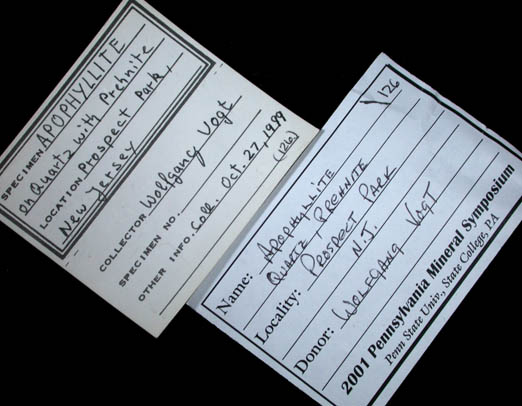 SPECIMEN APOPHYLLITE
on Quartz with Prehnite
LOCATION Prospect Park,
New Jersey
COLLECTOR Wolfgang Vogt
SPECIMEN NO.
OTHER INFO. Coll. Oct. 27, 1999
(126)
126
Name: APOPHYLLITE
QUARTZ PREHNITE
Locality: PROSPECT PARK
N.J.
Donor: WOLFGANG VOGT
2001 Pennsylvania Mineral Symposium
Penn State Univ., State College, PA